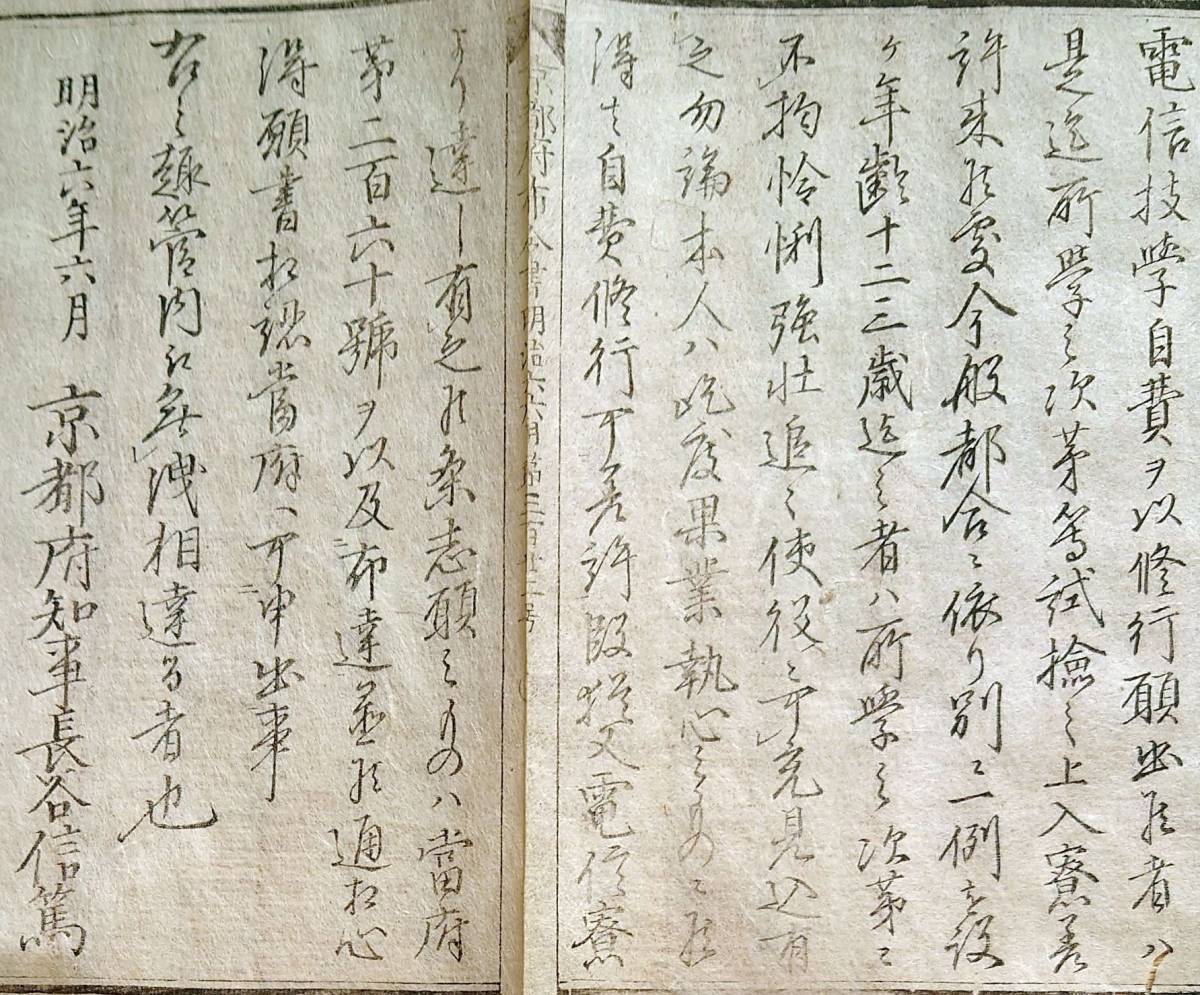 電信技学自費ヲ以修行願出候者ハ
是迄所学之次第等試撿之上入寮差
許来候處今般都合ニ依リ別ニ一例を設
ケ年齢十二三歳迄之者ハ所学之次第ニ
不拘怜悧強壮追々使役ニ可充見込有
之勿論本人ハ屹度果業執心之ものニ候
得ハ自費修行可差許段猶又電信寮
より達し有之候条志願之ものハ當府
第二百六十號ヲ以及布達置候通相心
得願書相認當府ヘ可申出事
右之趣管内江無洩相達る者也
明治六年六月 京都府知事長谷信篤
京都府布令書 明治六六月 第三百廿三号